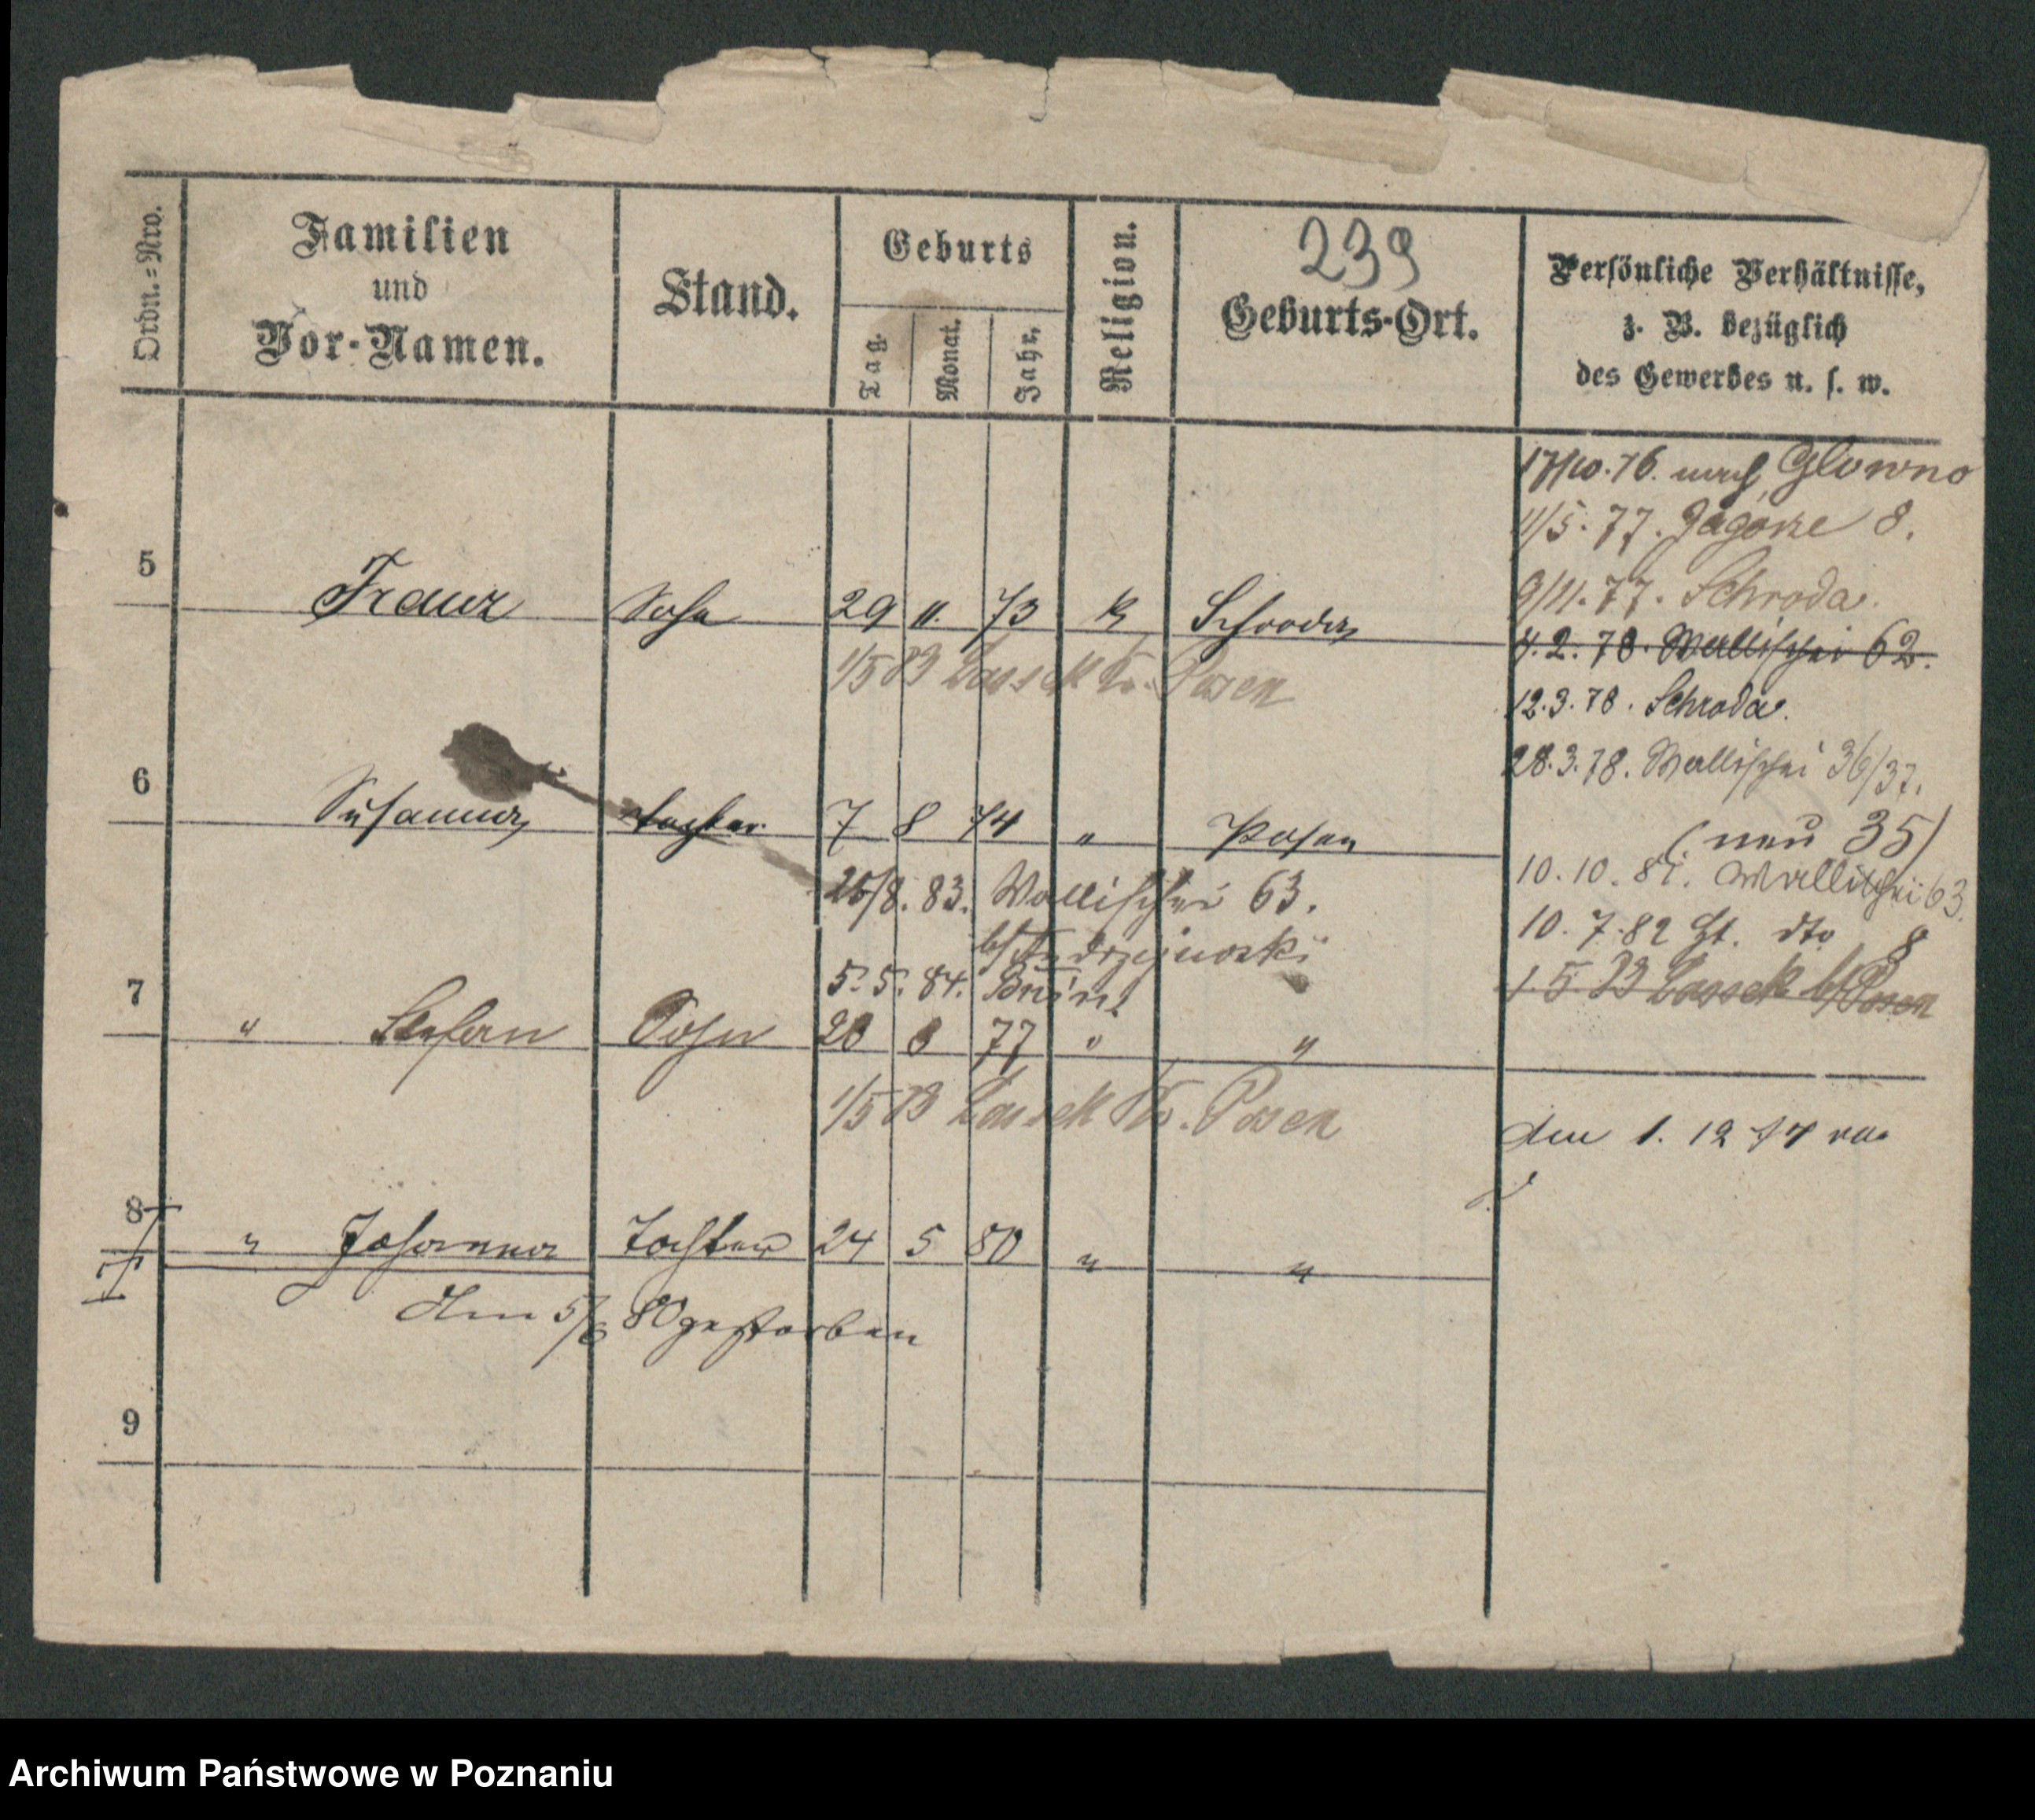 239
Ordn.=Nro.
Familien
und
Vor-Namen.
Stand.
Geburts
Tag.
Monat.
Jahr.
Religion.
Geburts-Ort.
Persönliche Verhältnisse,
z. B. bezüglich
des Gewerbes u. s. w.
17/10.76. nach Glowno
11/5.77. Zagorze 8.
9/11.77. Schroda.
4.2.78. Wallischei 62.
12.3.78. Schroda.
28.3.78. Wallischei 36/37.
(neu 35)
10.10.81. Wallischei 63.
10.7.82 dto 8
1.5 83 Lassek b/Posen
5 Franz Sohn 29 11. 73 K Schroda
1/5 83 Lassek Kr. Posen
6 Susanna Tochter 7 8 74 " Posen
25/8.83. Wallischei 63.
b/ Andrzejewski
5.5.84.
7 " Stefan Sohn 28 8 77 " "
1/5 83 Lassek Kr. Posen
den 1. 12 77
8 " Johanna Tochter 24 5 80 " "
Am 5/6 80 gestorben
9
Archiwum Państwowe w Poznaniu